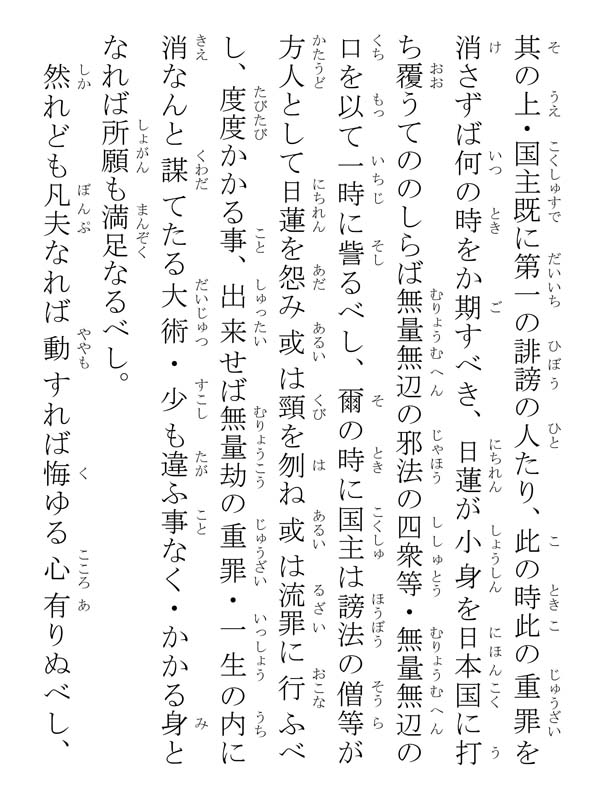 其の上・国主既に第一の誹謗の人たり、此の時此の重罪を
消さずば何の時をか期すべき、日蓮が小身を日本国に打
ち覆うてののしらば無量無辺の邪法の四衆等・無量無辺の
口を以て一時に訾るべし、爾の時に国主は謗法の僧等が
方人として日蓮を怨み或は頸を刎ね或は流罪に行ふべ
し、度度かかる事、出来せば無量劫の重罪・一生の内に
消なんと謀てたる大術・少も違ふ事なく・かかる身と
なれば所願も満足なるべし。
然れども凡夫なれば動すれば悔ゆる心有りぬべし、